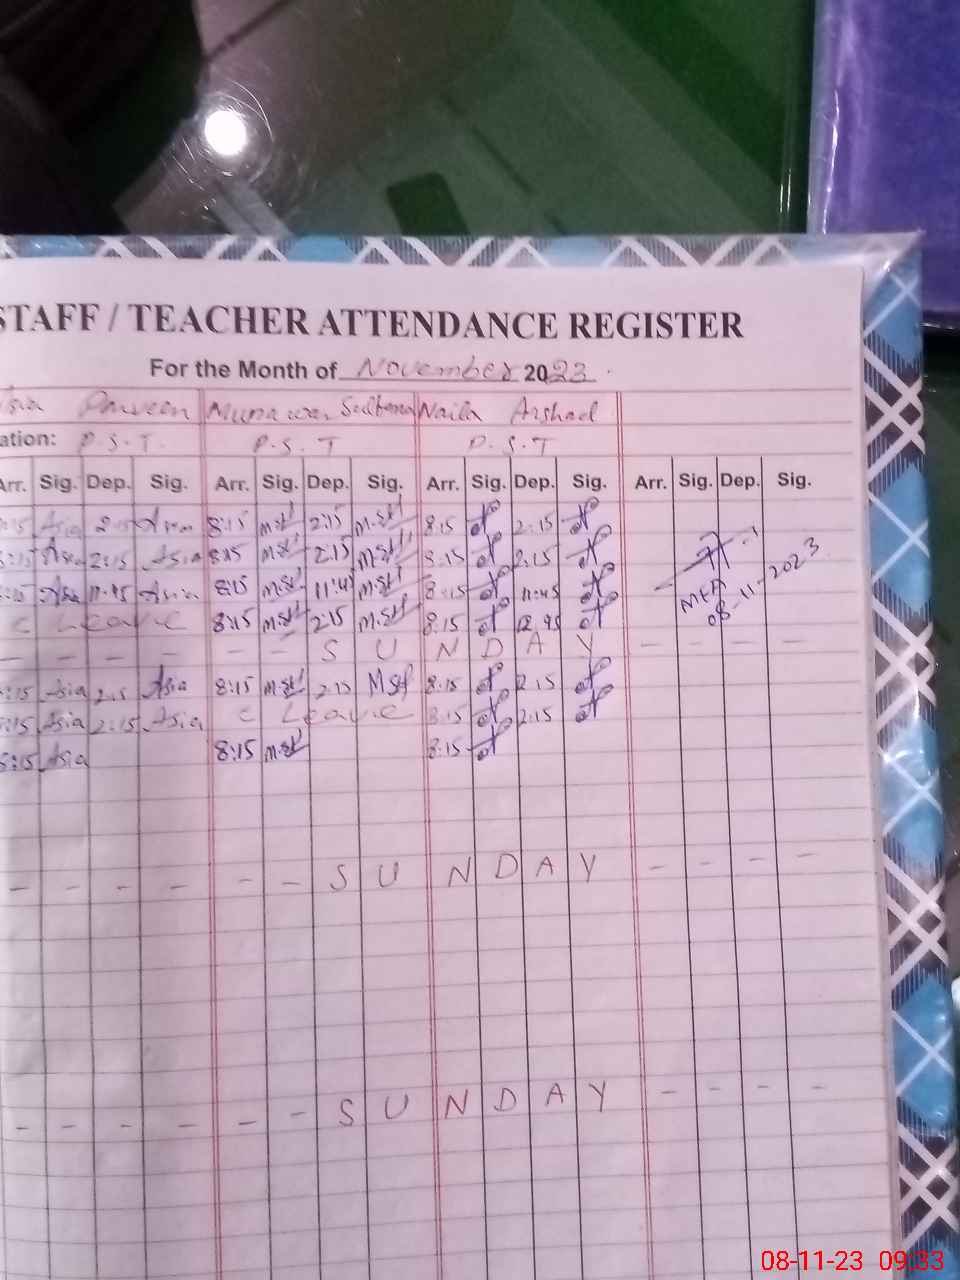 STAFF / TEACHER ATTENDANCE REGISTER
For the Month of November 2023
Parveen Munawar Sultana Naila Arshad
ation: P.S.T. P.S.T P.S.T
Arr. Sig. Dep. Sig. Arr. Sig. Dep. Sig. Arr. Sig. Dep. Sig. Arr. Sig. Dep. Sig.
:15 Asia 2:15 Asia 8:15 M.St 2:15 M.St 8:15 2:15
8:15 Asia 2:15 Asia 8:15 M.St 2:15 M.St 8:15 2:15
:15 Asia 11:45 Asia 8:15 M.St 11:45 M.St 8:15 11:45
C Leave 8:15 M.St 2:15 M.St 8:15
MEA
08-11-2023
- - - - - - S U N D A Y - - - -
8:15 Asia 2:15 Asia 8:15 M.St 2:15 M St 8:15 2:15
8:15 Asia 2:15 Asia C Leave 8:15 2:15
8:15 Asia 8:15 M.St 8:15
- - - - - - S U N D A Y - - - -
- - - - - - S U N D A Y - - - -
08-11-23 09:33